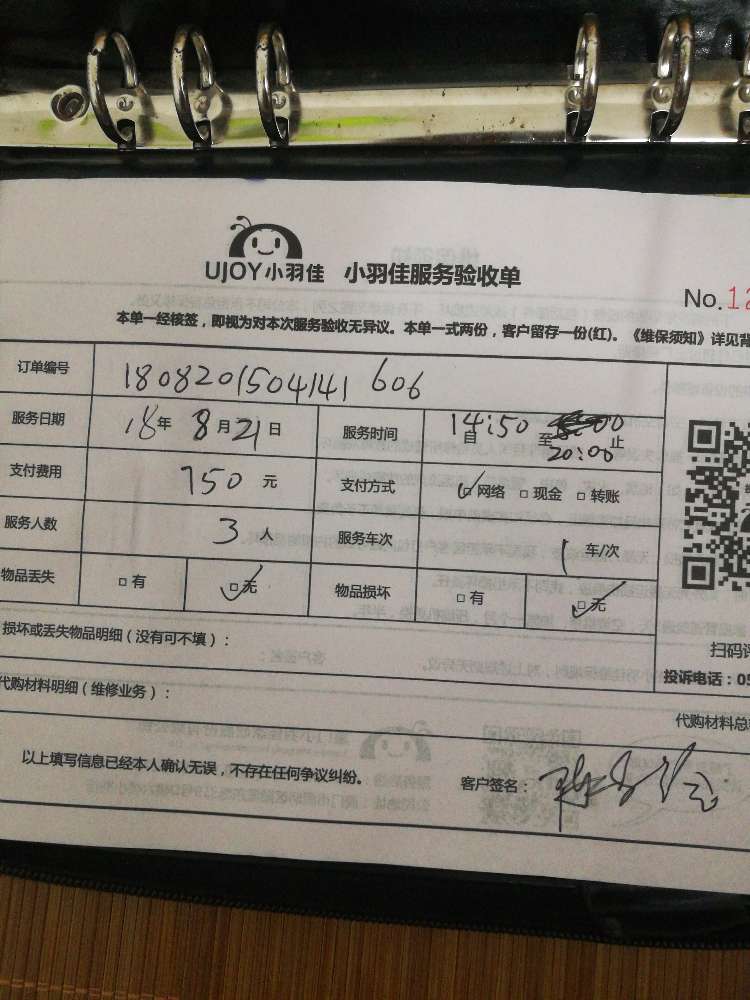 UJOY小羽佳 小羽佳服务验收单
No.12
本单一经核签，即视为对本次服务验收无异议。本单一式两份，客户留存一份(红)。《维保须知》详见背
订单编号 1808201504141 606
服务日期 18年 8月21日 服务时间 14:50 自 至 20:00 止
支付费用 750 元 支付方式 ☑网络 □现金 □转账
服务人数 3 人 服务车次 1 车/次
物品丢失 □有 ☑无 物品损坏 □有 ☑无
损坏或丢失物品明细（没有可不填）：
扫码评
投诉电话：05
代购材料明细（维修业务）：
代购材料总
以上填写信息已经本人确认无误，不存在任何争议纠纷。
客户签名：